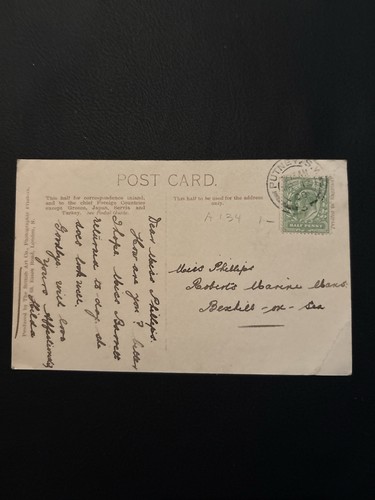 POST CARD.
This half for correspondence inland;
and to the chief Foreign Countries
except Greece, Japan, Servia and
Turkey.
This half to be used for the address
only.
A 134
PUTNEY S.
HALF PENNY
Dear Miss Phillips.
How are you? better
I hope Miss Barnett
returned to-day she
does look well.
Goodbye with love
yours affectionately
Hilda
Miss Phillips
Roberts Marine Mans
Bexhill-on-Sea